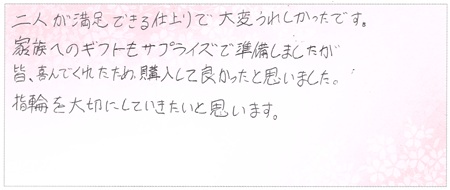 二人が満足できる仕上りで大変うれしかったです。
家族へのギフトもサプライズで準備しましたが
皆、喜んでくれたため、購入して良かったと思いました。
指輪を大切にしていきたいと思います。